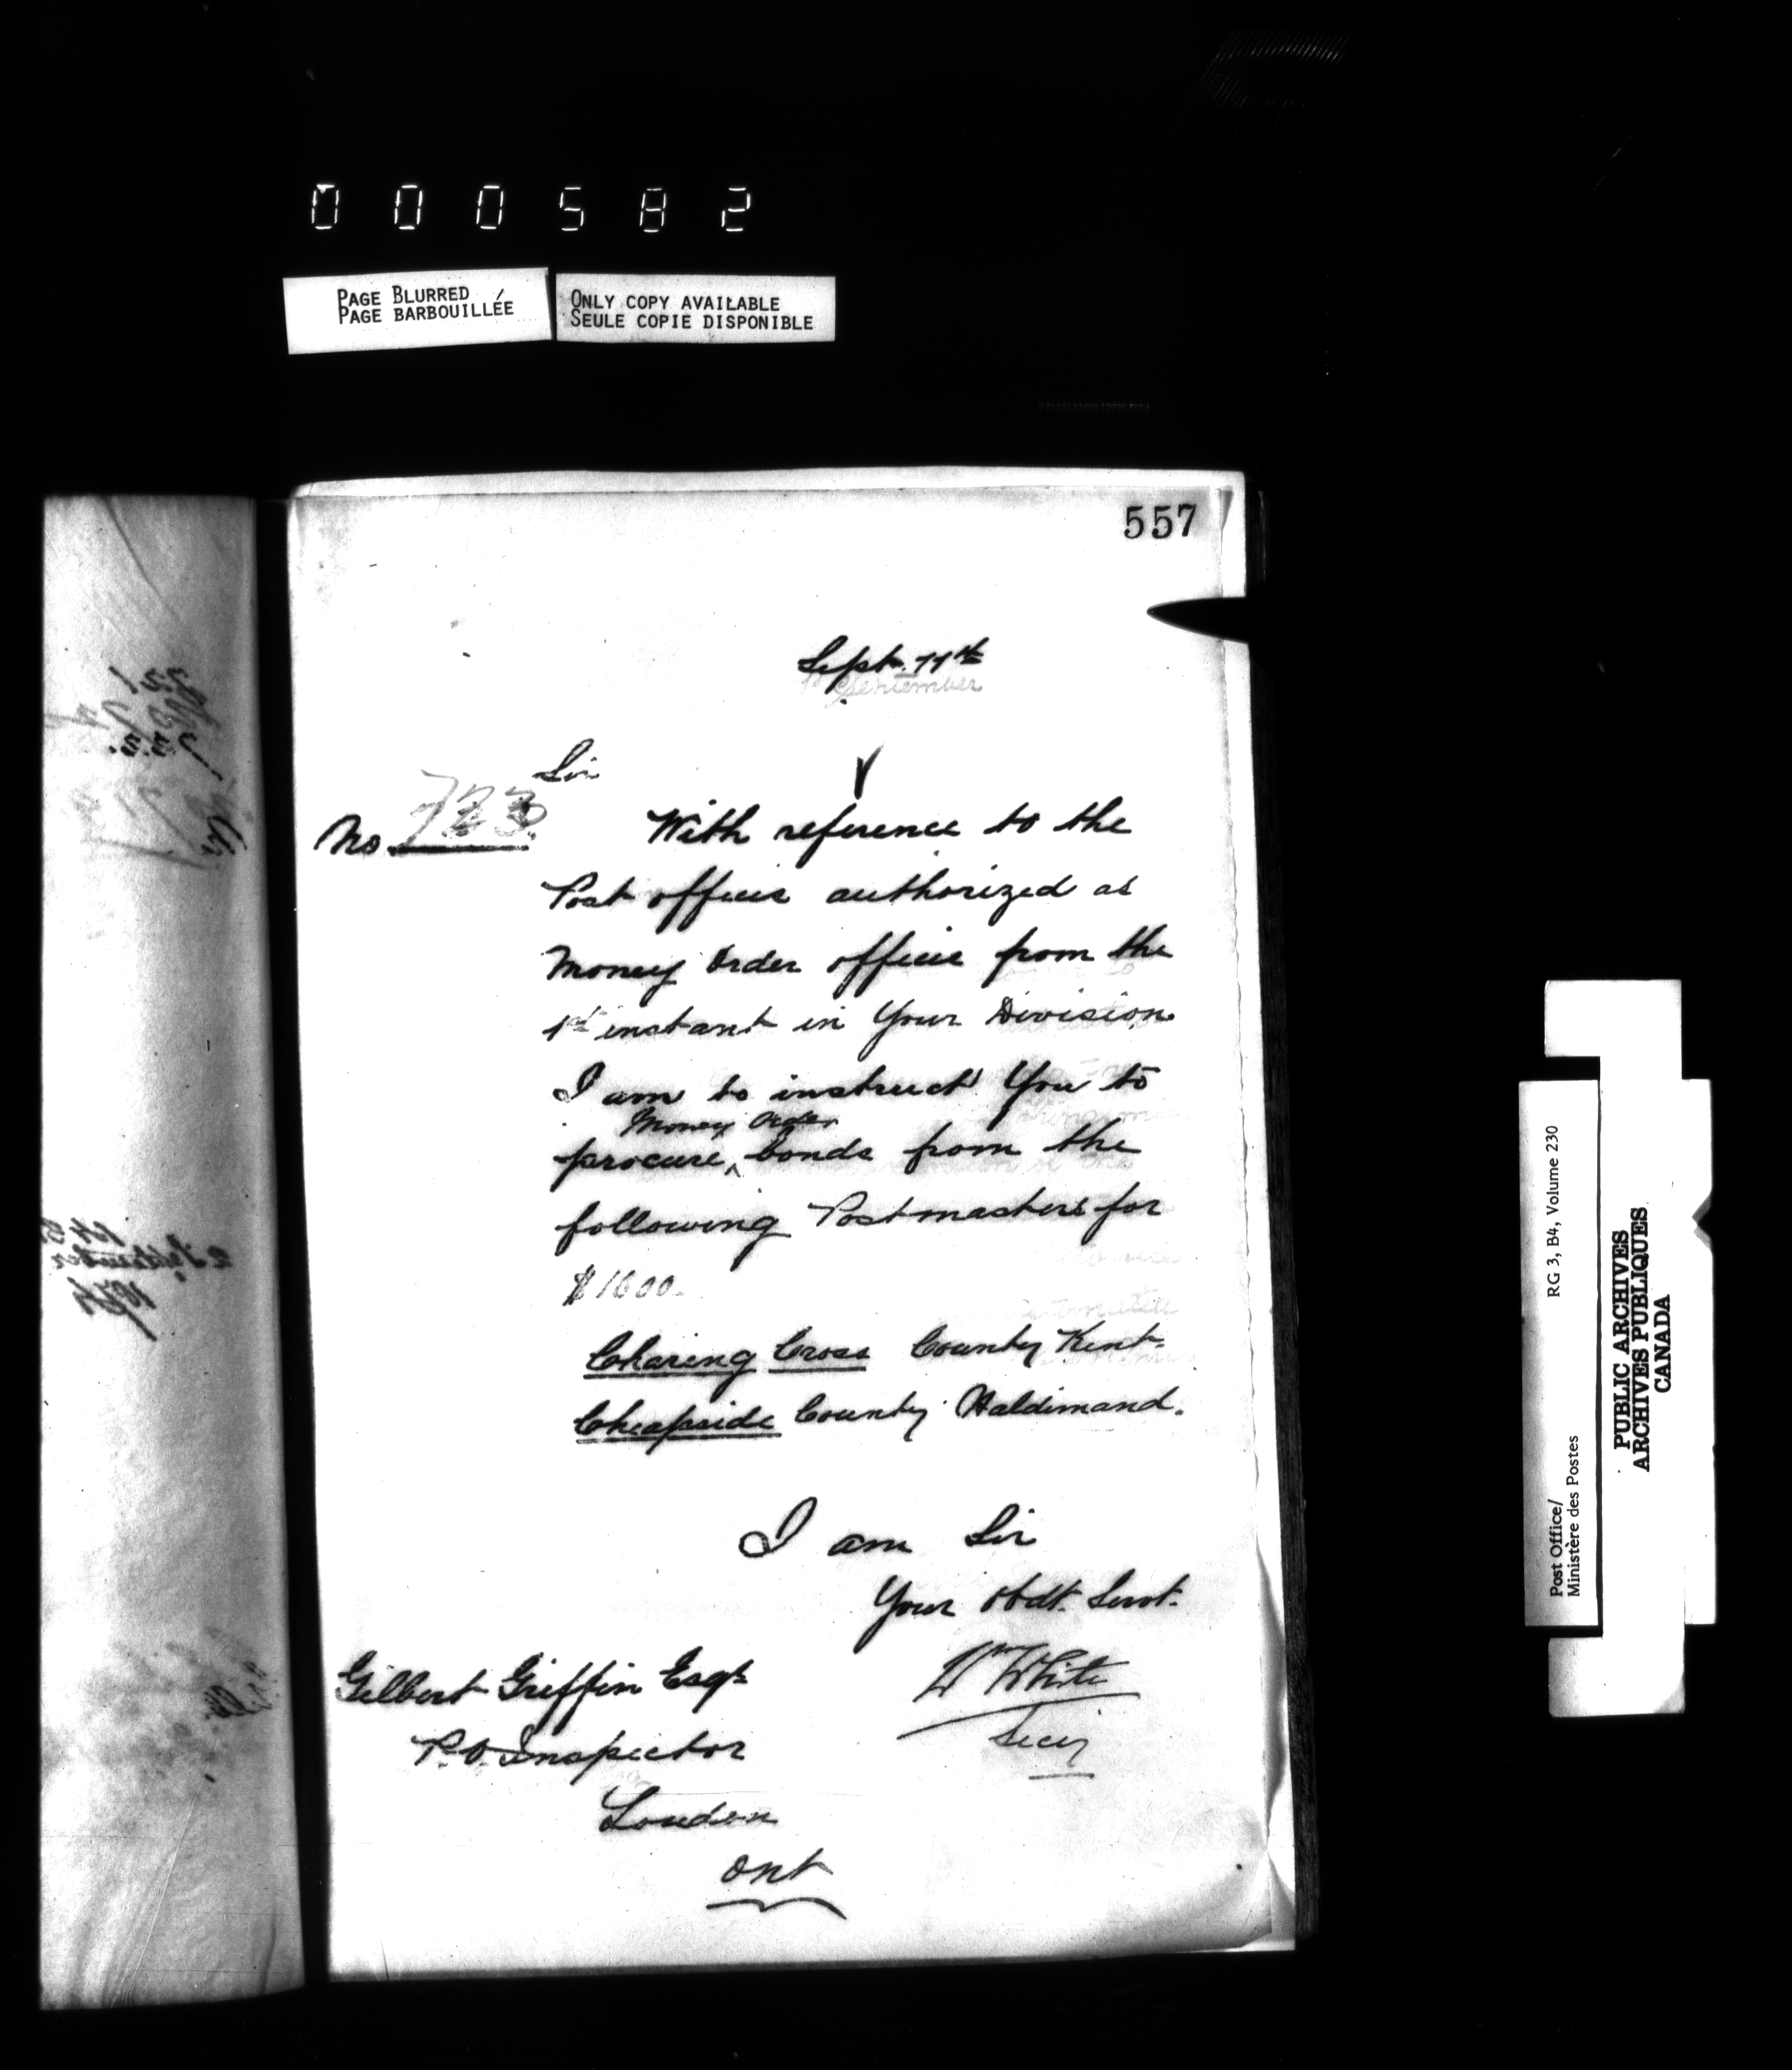 000582
PAGE BLURRED
PAGE BARBOUILLÉE
ONLY COPY AVAILABLE
SEULE COPIE DISPONIBLE
557
Sept. 11th
September
Sir
No 723.
With reference to the
Post offices authorized as
Money Order offices from the
1st instant in Your Division
I am to instruct You to
Money Order
procure, bonds from the
following Postmasters for
$1600.
Charing Cross County Kent
Cheapside County Haldimand.
I am Sir
Your Obdt. Servt.
Gilbert Griffin Esqr
P.O. Inspector
London
Ont
W White
Secy
Post Office/
Ministère des Postes
RG 3, B4, Volume 230
PUBLIC ARCHIVES
ARCHIVES PUBLIQUES
CANADA